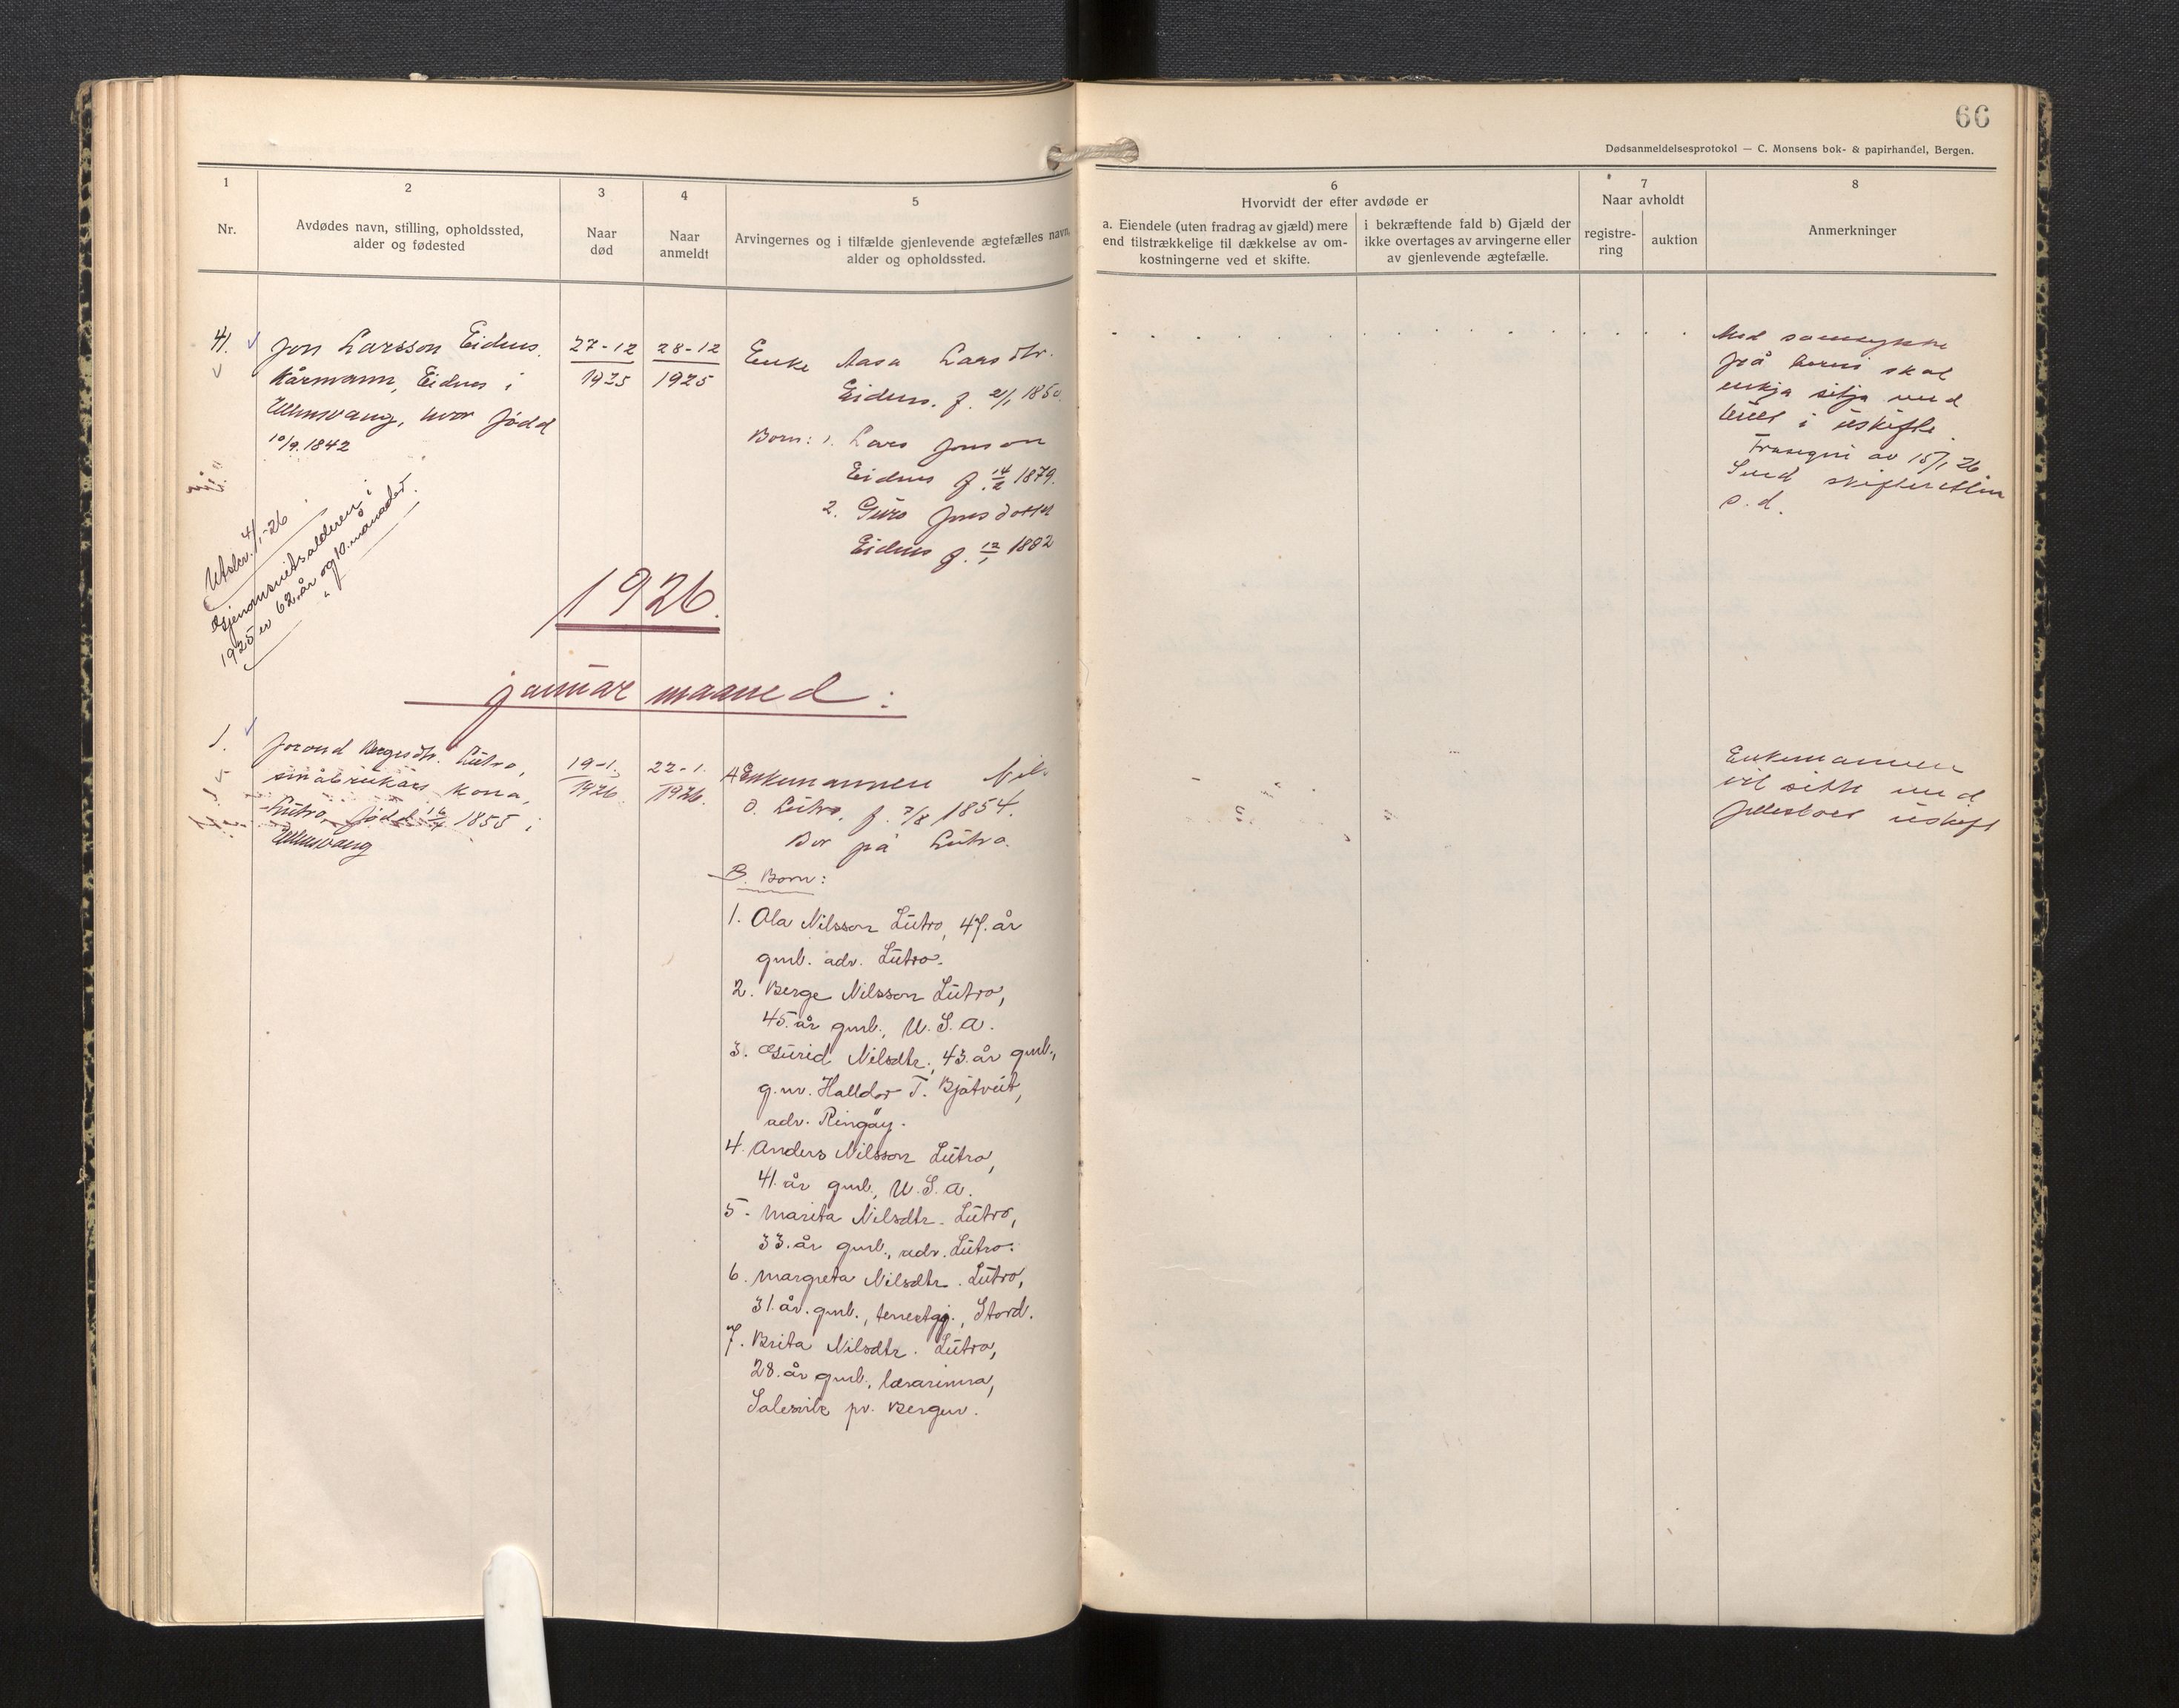 66
Dødsanmeldelsesprotokol — C. Monsens bok- & papirhandel, Bergen.
1
Nr.
2
Avdødes navn, stilling, opholdssted,
alder og fødested
3
Naar
død
4
Naar
anmeldt
5
Arvingernes og i tilfælde gjenlevende ægtefælles navn,
alder og opholdssted.
6
Hvorvidt der efter avdøde er
a. Eiendele (uten fradrag av gjæld) mere
end tilstrækkelige til dækkelse av om-
kostningerne ved et skifte.
i bekræftende fald b) Gjæld der
ikke overtages av arvingerne eller
av gjenlevende ægtefælle.
7
Naar avholdt
registre-
ring
auktion
8
Anmerkninger
41.
Jon Larsson Eidnes.
Kårmann, Eidnes i
Ullensvang, hvor född
10/9. 1842
27-12
1925
28-12
1925
Enke Aasa Larsdtr.
Eidnes. f. 1850
Born: 1. Lars Jonson
Eidnes f. 14/2 1879.
2. Guro Jonsdotter
Eidnes f. 12/1 1882
Med samtykke
frå borni skal
enkja sitja med
buet i uskifte.
av 15/1 26.
Send skifteretten
s. d.
Utskr. 4/1-26
Gjenomsnitsalderen i
1925 er 62 år og 10 månader.
1926.
januar maaned:
1.
Jorond Bergesdtr. Lutro,
småbrukars kona,
Lutro, född 16/4 1855 i
Ullensvang
19-1.
1926.
22-1.
1926.
A Enkemannen Nils
O. Lutro, f. 7/8 1854.
Bor på Lutro.
B. Born:
1. Ola Nilsson Lutro, 47. år
gml. adr. Lutro.
2. Berge Nilsson Lutro,
45. år gml., U. S. A.
3. Gurid Nilsdtr., 43. år gml.,
g. m. Halldor T. Bjotveit,
adr. Ringöy.
4. Anders Nilsson Lutro,
41. år gml., U. S. A.
5. Marita Nilsdtr. Lutro,
33. år gml., adr. Lutro.
6. Margreta Nilsdtr. Lutro,
31. år. gml., Stord.
7. Brita Nilsdtr. Lutro,
28. år gml., lærarinna,
Salesvik pr. Bergen.
Enkemannen
vil sitte med
fellesboet uskift